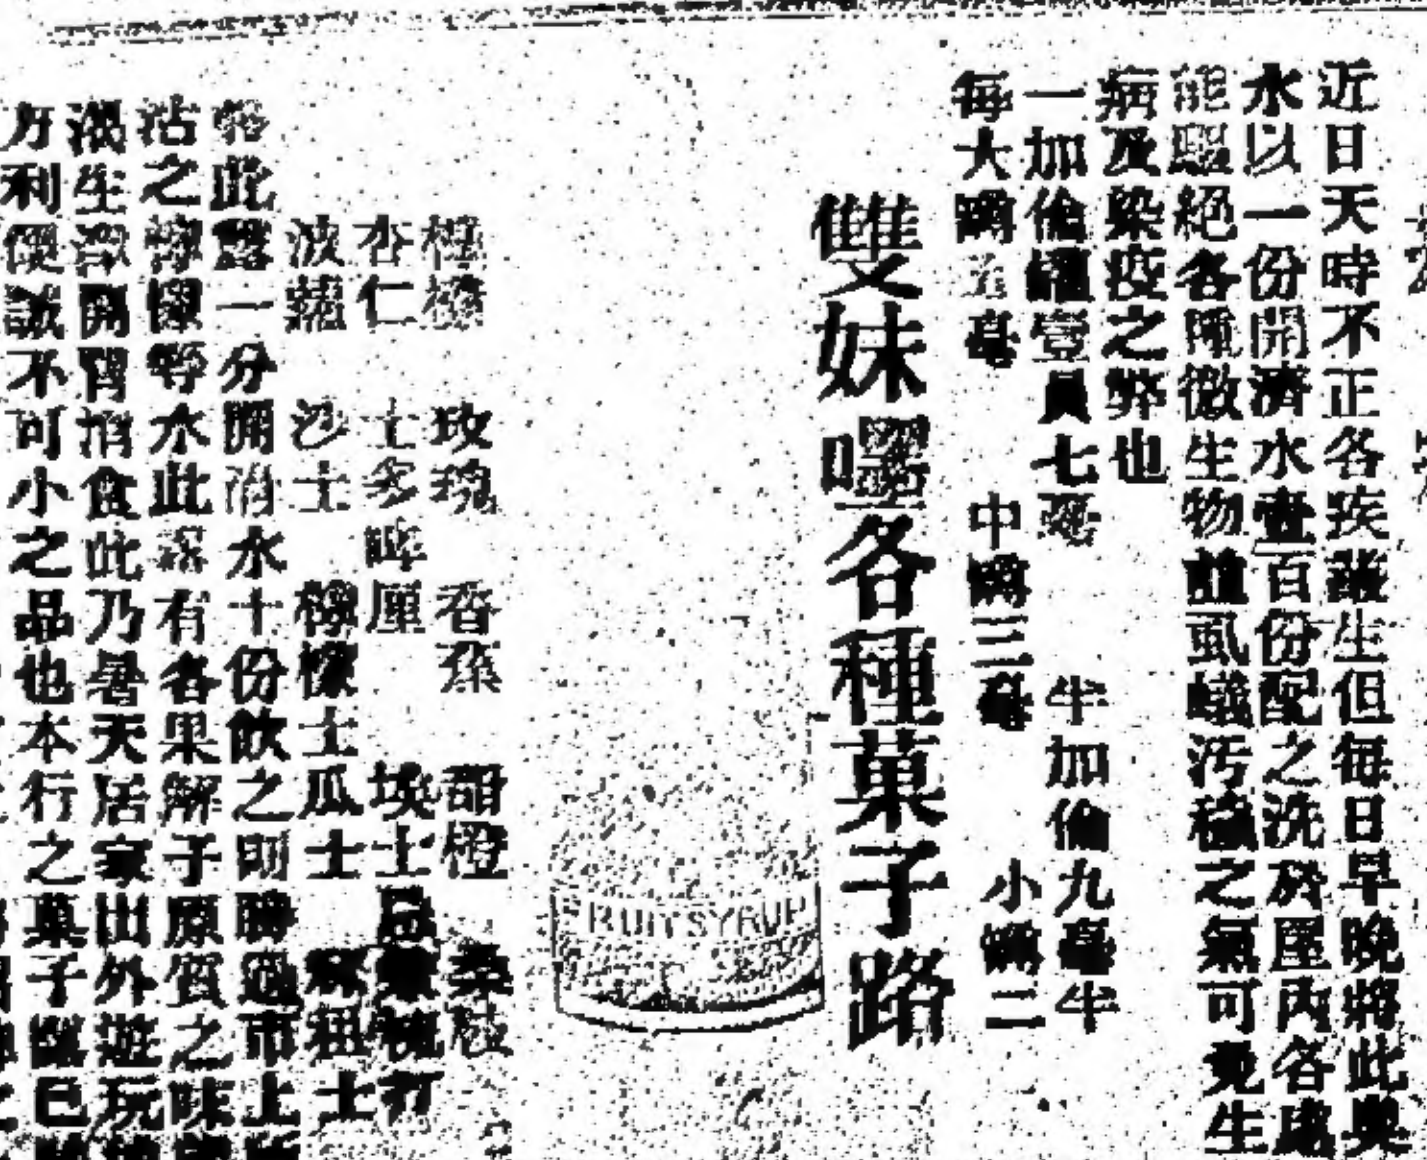 近日天時不正各疾叢生但每日早晚將此與
水以一份開濟水壹百份配之洗於屋內各處
能驅絕各種微生物並虱蟻汚穢之氣可免生
病及染疫之弊也
一加倫罐壹員七毫 半加倫九毫半
每大罇五毫 中罇三毫 小罇二
雙妹嚜各種菓子路
RUIT SYRUP
玫瑰 香蕉 甜橙
杏仁 士多啤厘 埃士
波蘿 沙士 檸檬 士瓜士
此露一分開消水十份飲之則勝過市上所
沽之檸檬等水此露有各果解子原質之味
渴生津開胃消食此乃暑天居家出外遊玩
方利便誠不可小之品也本行之菓子 已